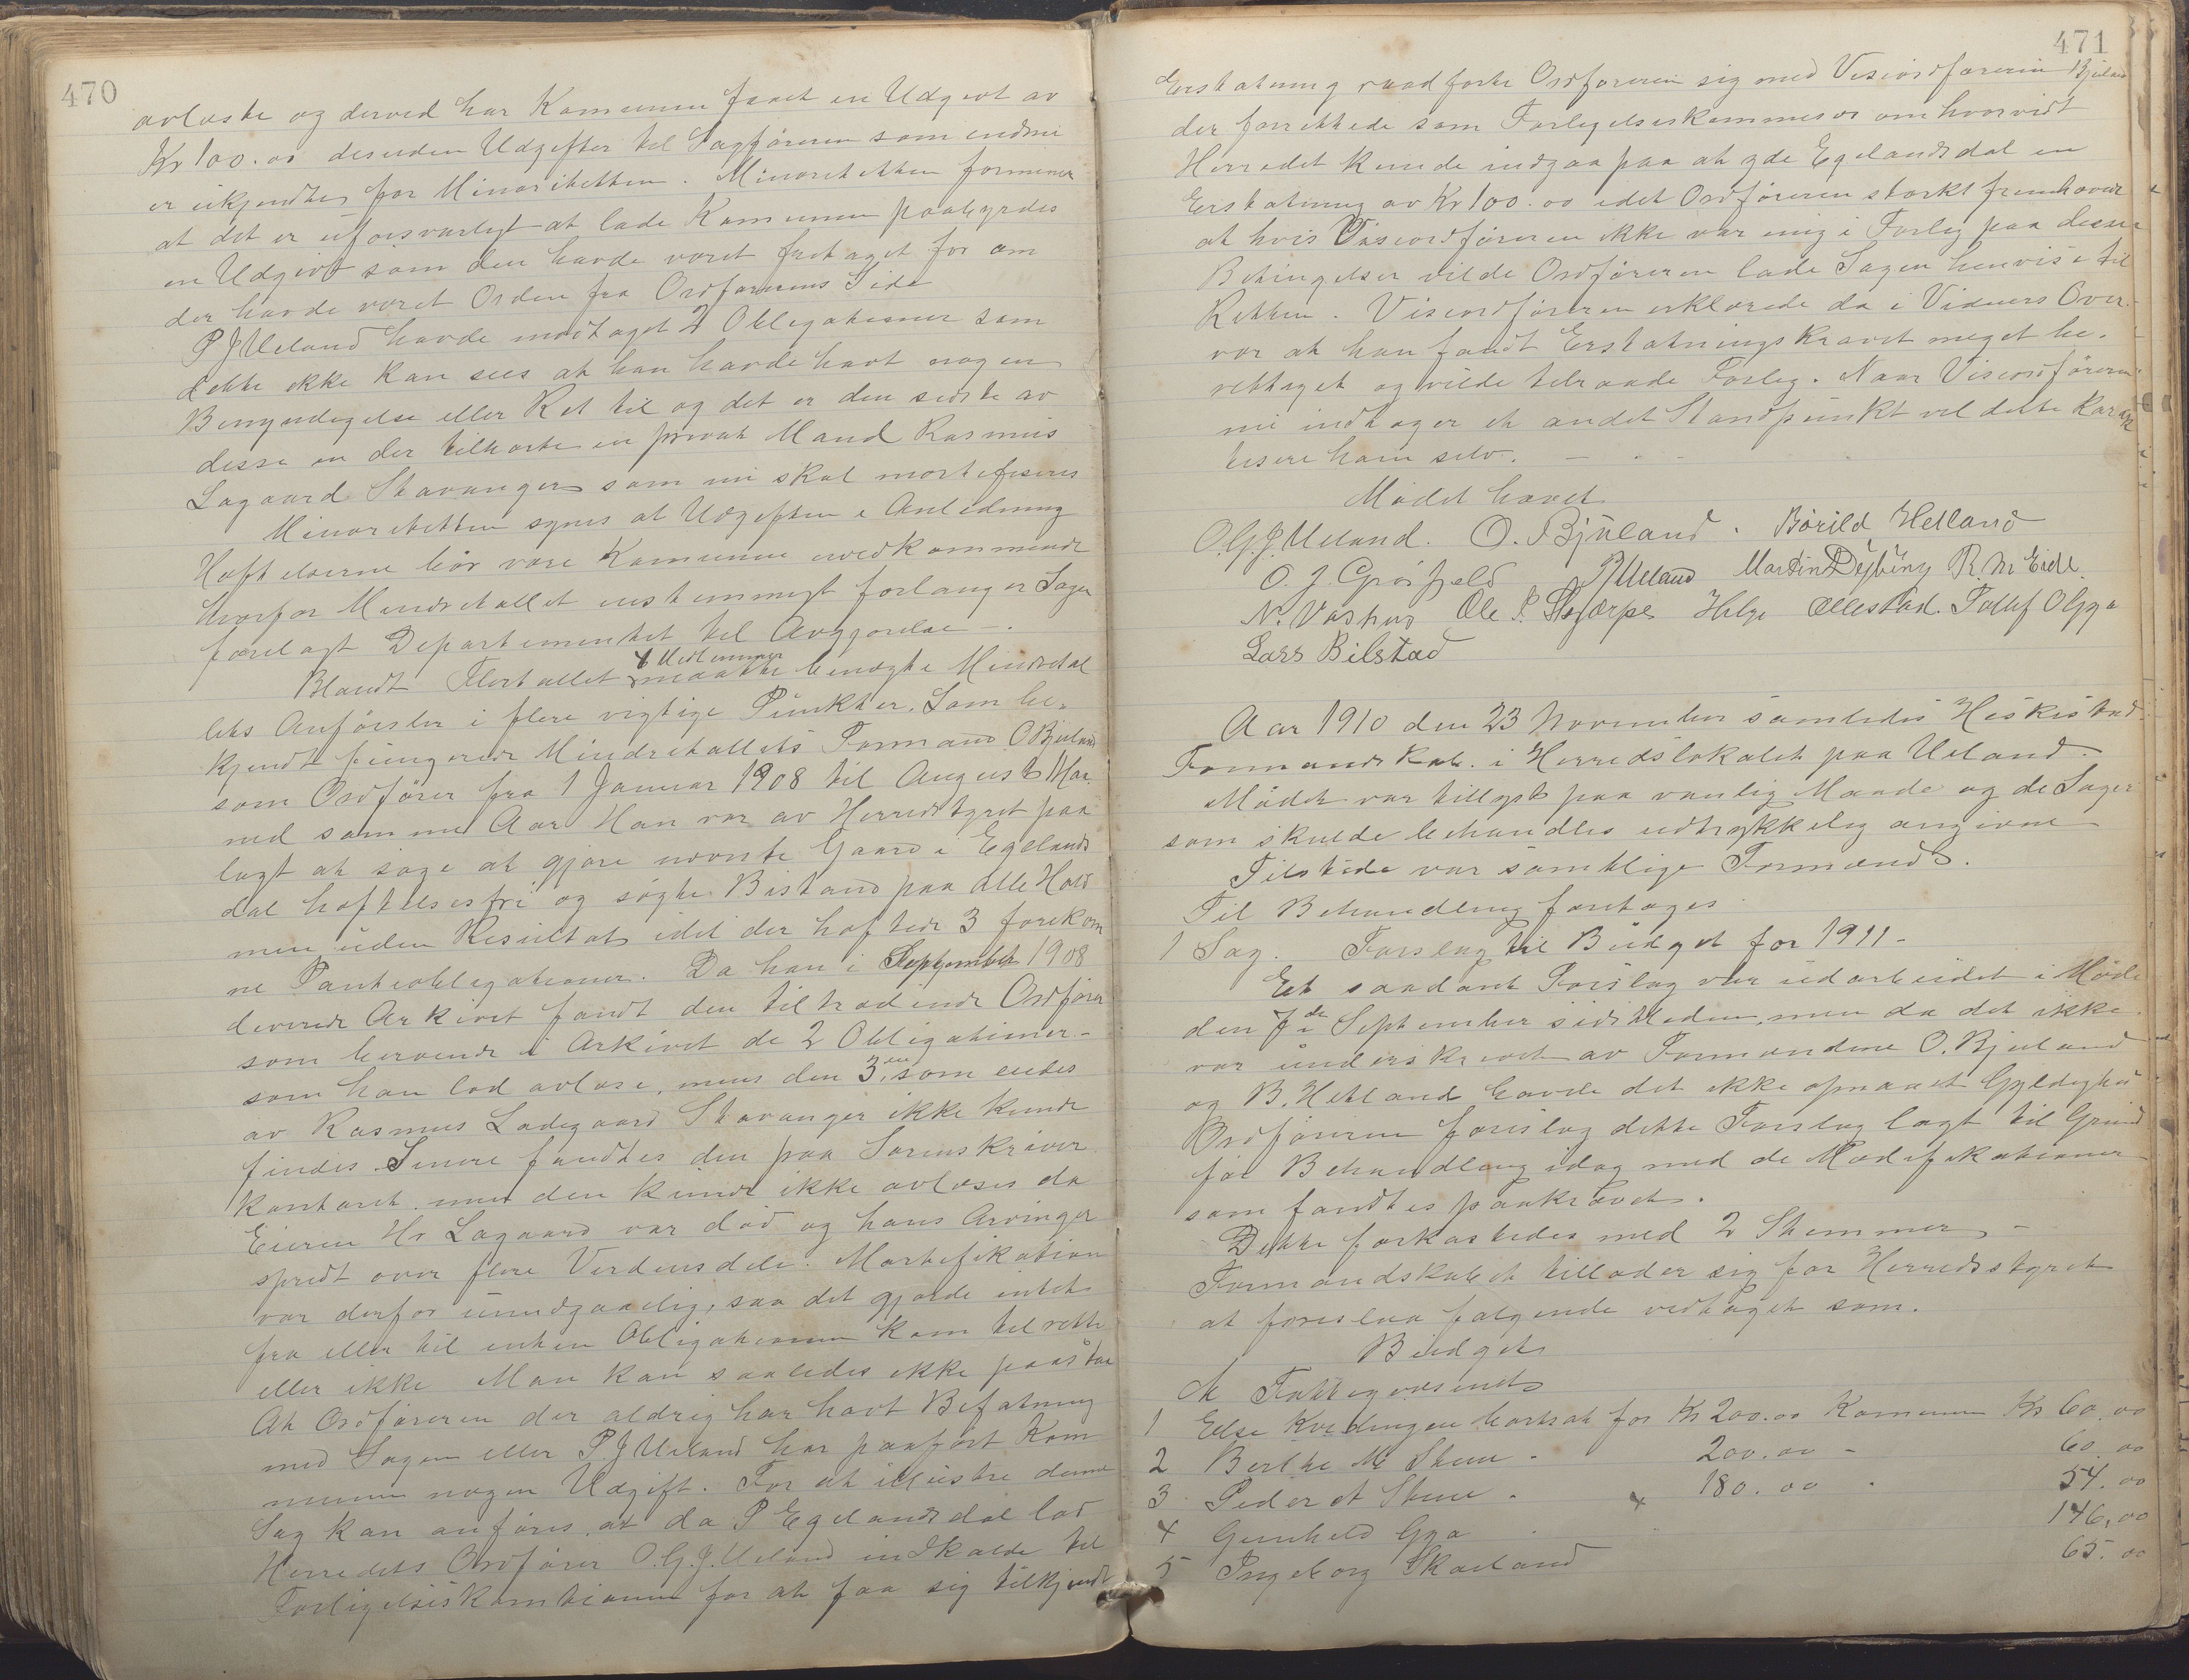 470
avløste og derved har Kommunen faaet en Udgivt av
Kr 100.00 desuden Udgifter til Sagføreren som endnu
er ukjendte for Minoritetten. Minoritetten formener
at det er uforsvarligt at lade Kommunen paabyrdes
en Udgivt som den havde været fritaget for om
der havde været Orden fra Ordførerens Side
P J Ueland havde modtaget 2 Obligationer som
dette ikke kan sees at han havde havt nogen
Bemyndigelse eller Ret til og det er den sidste av
disse en der tilhørte en privat Mand Rasmus
Lagaard Stavanger som nu skal mortifiseres
Minoritetten synes at Udgiften i Anledning
Heftelserne bør være Kommunen uvedkommende
hvorfor Mindretallet enstemmigt forlanger Sagen
forelagt Departementet til Avgjørelse -.
6 Medlemmer
Blandt Flertallet maatte benægte Mindretal
lets Anførsler i flere vigtige Punkter. Som be-
kjendt fungerede Mindretallets Formand O Bjuland
som Ordfører fra 1 Januar 1908 til August Maa
ned samme Aar. Han var av Herredstyret paa
lagt at søge at gjøre nævnte Gaard i Egelands
dal heftelsesfri og søgte Bistand paa alle Hold
men uden Resultat idet der heftede 3 forekom
ne Panteobligationer. Da han i September 1908
leverede Arkivet fandt den tiltrædende Ordfører
som beroende i Arkivet de 2 Obligationer -
som han lod avløse, mens den 3.die som eiedes
av Rasmus Ladegaard Stavanger ikke kunde
findes. Senere fandtes den paa Sorenskriver
kontoret men den kunde ikke avløses da
Eieren Hr Lagaard var død og hans Arvinger
spredt over flere Verdensdele. Mortifikation
var derfor uundgaaelig, saa det gjorde intet
fra eller til enten Obligationen kom tilrette
eller ikke. Man kan saaledes ikke paastaa
At Ordføreren der aldrig har havt Befatning
med Sagen eller P J Ueland har paaført Kom
munen nogen Udgift. For at illustre denne
Sag kan anføres, at da P Egelandsdal lod
Herredets Ordfører O. G. J. Ueland indkalde til
Forligelseskommissionen for at faa sig tilkjendt
471
Erstatning raadførte Ordføreren sig med Viseordføreren Bjuland
der forrettede som Forligelseskommisær om hvorvidt
Herredet kunde indgaa paa at yde Egelandsdal en
Erstatning av Kr 100.00 idet Ordføreren stærkt fremhævede
at hvis Viseordføreren ikke var enig i Forlig paa disse
Betingelser vilde Ordføreren lade Sagen henvise til
Retten. Viseordføreren erklærede da i Vidners Over-
vær at han fandt Erstatningskravet meget be-
rettiget og vilde tilraade Forlig. Naar Viseordføreren
nu indtager et andet Standpunkt vil dette karak
tisere ham selv. -
Mødet hævet
O.G.J. Ueland. O. Bjuland. Børild Hetland
O. J. Grøsfjeld P J Ueland Martin Dybing R. M Eide.
N. Vashus Ole P. Skjerpe Helge Ollestad. Tollef O Gya
Lars Bilstad
Aar 1910 den 23 November samledes Heskestad
Formandskab i Herredslokalet paa Ueland.
Mødet var tillyst paa vanlig Maade og de Sager
som skulde behandles udtrykkelig angivne
Tilstede var samtlige Formænd.
Til Behandling foretoges
1 Sag. Forslag til Budget for 1911 -
Et saadant Forslag var udarbeidet i Møde
den 7de September sidstleden, men da det ikke
var underskrevet av Formændene O. Bjuland
og B. Hetland havde det ikke opnaaet Gyldighed
Ordføreren foreslog dette Forslag lagt til Grund
for Behandling idag med de Modifikationer
som fandtes paakrævet.
Dette forkastedes med 2 Stemmer -
Formandskabet tillader sig for Herredsstyret
at foreslaa følgende vedtaget som.
Budget
A Fattigvæsenet
1 Else Kvedingen bortsat for Kr 200.00 Kommunen Kr 60.00
2 Berthe M Skeie - 200.00 - 60.00
3 Peder A Skeie - 180.00 - 54.00
4 Gunhild Gya 146,00
5 Ingeborg Skaaland 65.00